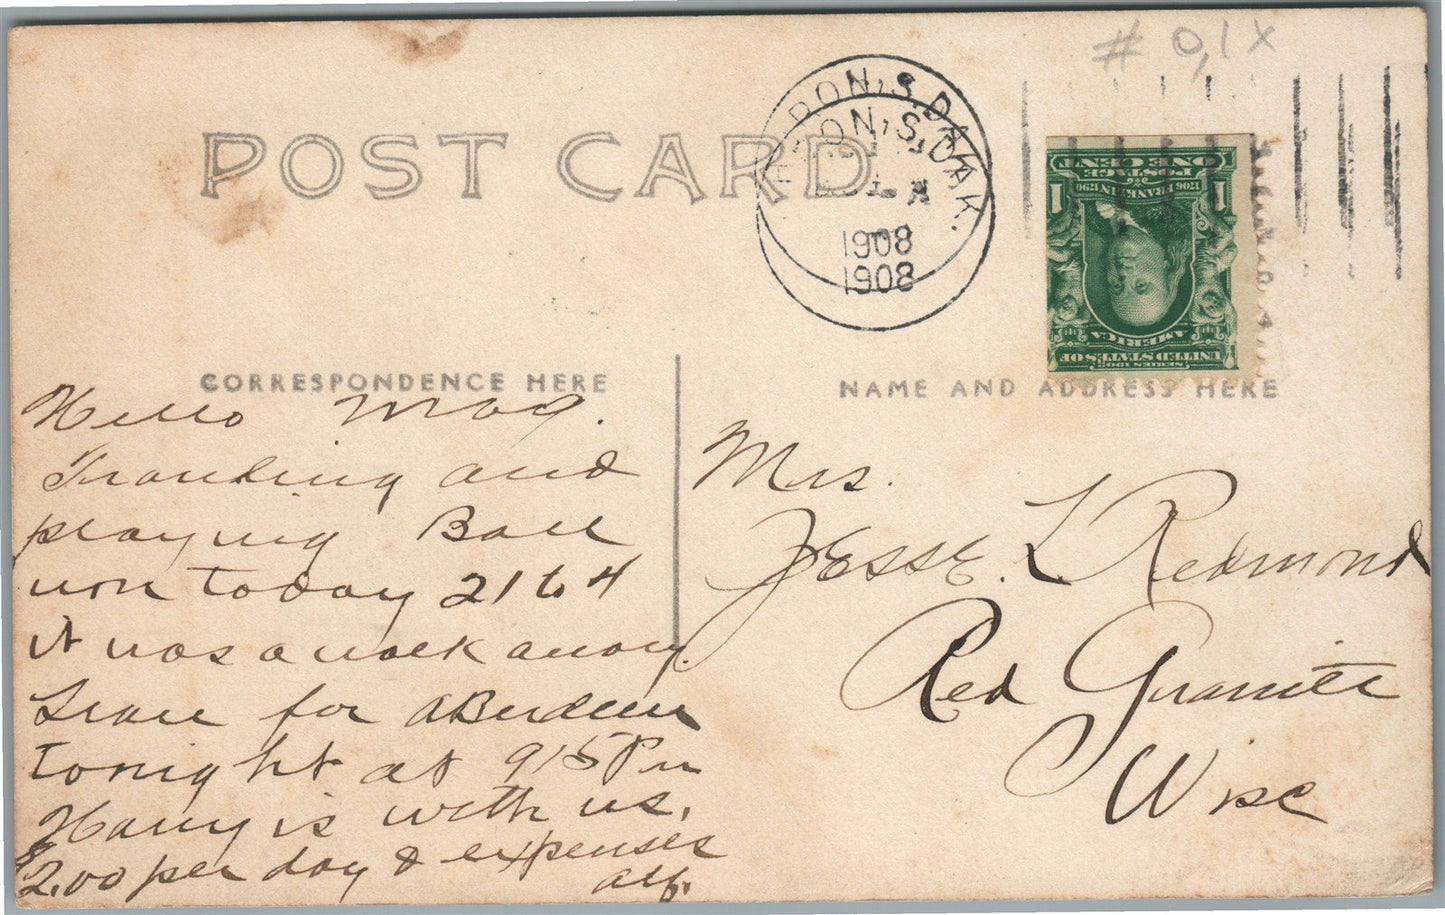 # 0,1X
POST CARD
HURON, S. DAK.
1908
1908
1 1706 FRANKLIN 1790 1
POSTAGE
ONE CENT
SERIES 1902
UNITED STATES OF
AMERICA
CORRESPONDENCE HERE
NAME AND ADDRESS HERE
Hello Mag.
Traveling and
playing Ball
won today 21 to 4
it was a walk away.
Leave for Aberdeen
tonight at 915 Pm
Harry is with us.
$2.00 per day & expenses
Alf.
Mrs.
Jesse. L Redmond
Red Granite
Wisc